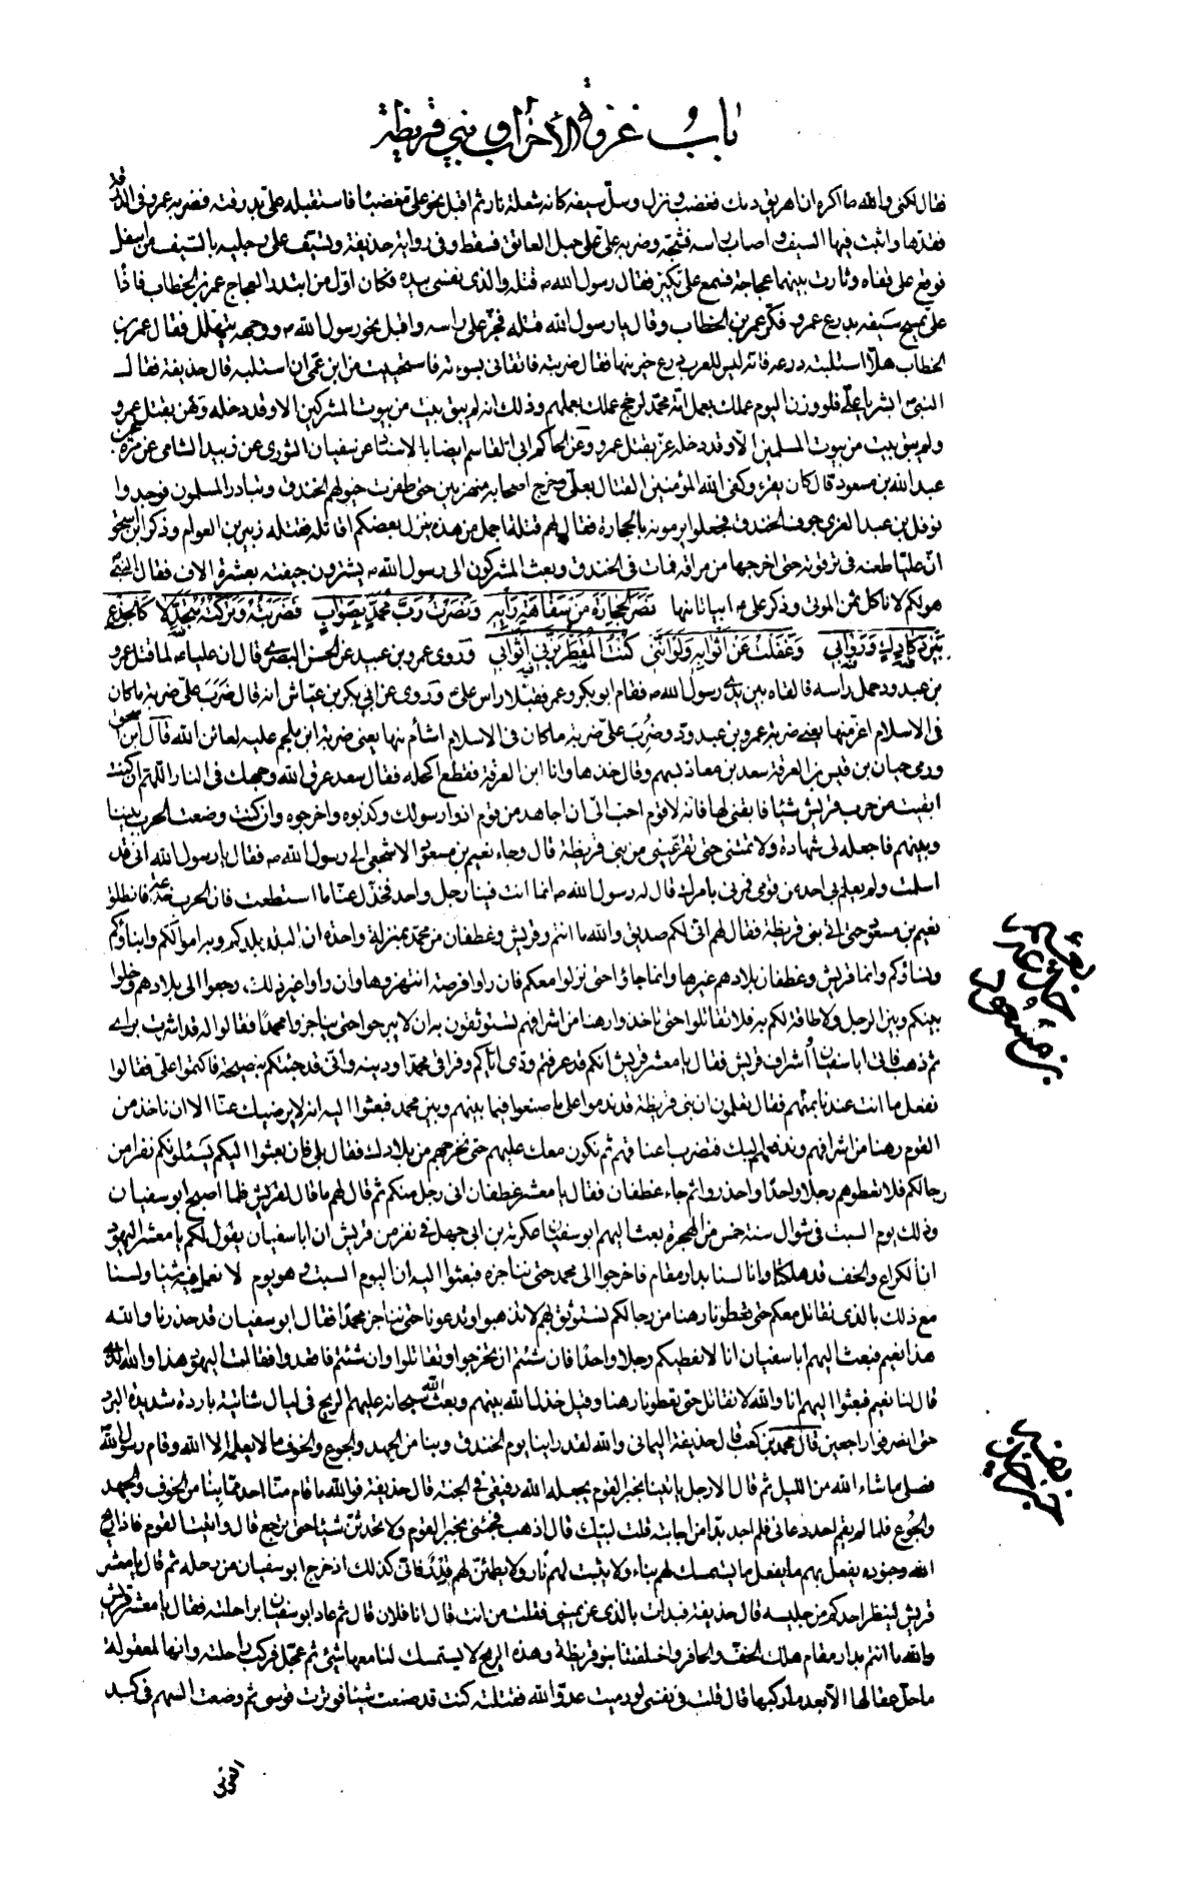 باب غزوة الأحزاب وبني قريظة
فقال لكني والله ما اكره ان اهريق دمك فغضب ونزل وسل سيفه كانه شعلة نار ثم اقبل نحو علي مغضبا فاستقبله علي بدرقته فضربه عمرو في الدرقة
فقدها واثبت فيها السيف واصاب راسه فشجه وضربه علي على حبل العاتق فسقط وفي رواية حذيفة وتسيف على رجليه بالسيف من اسفل
فوقع على قفاه وثارت بينهما عجاجة فسمع علي يكبر فقال رسول الله ص قتله والذي نفسي بيده فكان اول من ابتدر العجاج عمر بن الخطاب فاذا
علي يمسح سيفه بدرع عمرو فكبر عمر بن الخطاب وقال يا رسول الله قتله فجز علي راسه واقبل نحو رسول الله ص ووجهه يتهلل فقال عمر بن
الخطاب هلا استلبته درعه فانه ليس للعرب درع خير منها فقال ضربته فاتقاني بسوءته فاستحييت من ابن عمي ان استلبه قال حذيفة فقال
النبي ابشر يا علي فلو وزن اليوم عملك بعمل امة محمد لرجح عملك بعملهم وذلك انه لم يبق بيت من بيوت المشركين الا وقد دخله وهن بقتل عمرو
ولم يبق بيت من بيوت المسلمين الا وقد دخله عز بقتل عمرو وعن الحاكم ابي القاسم ايضا بالاسناد عن سفيان الثوري عن زبيد الشامي عن مرة عن
عبد الله بن مسعود قال كان يقرء وكفى الله المؤمنين القتال بعلي وخرج اصحابه منهزمين حتى طفرت خيولهم الخندق وتبادر المسلمون فوجدوا
نوفل بن عبد العزى جوف الخندق فجعلوا يرمونه بالحجارة فقال لهم قتلة اجمل من هذه ينزل بعضكم اقاتله فقتله زبير بن العوام وذكر ابن اسحق
ان عليا طعنه في ترقوته حتى اخرجها من مراقه فمات في الخندق وبعث المشركون الى رسول الله ص يشترون جيفته بعشرة الاف فقال النبي
هو لكم لا ناكل ثمن الموتى وذكر علي ع ابياتا منها نصر الحجارة من سفاهة رأيه ونصرت رب محمد بصواب فضربته وتركته متجدلا كالجذع
بين دكادك وروابي وعففت عن اثوابه ولو انني كنت المقطر بزني اثوابي وروى عمرو بن عبيد عن الحسن البصري قال ان عليا ع لما قتل عمرو
بن عبدود حمل راسه فالقاه بين يدي رسول الله ص فقام ابو بكر وعمر فقبلا راس علي ع وروى عن ابي بكر بن عياش انه قال ضرب علي ضربة ما كان
في الاسلام اعز منها يعني ضربة عمرو بن عبدود وضرب علي ضربة ما كان في الاسلام اشأم منها يعني ضربة ابن ملجم عليه لعائن الله قال ابن اسحق
ورمى حبان بن قيس بن العرقة سعد بن معاذ بسهم وقال خذها وانا ابن العرقة فقطع اكحله فقال سعد عرق الله وجهك في النار اللهم ان كنت
ابقيت من حرب قريش شيئا فابقني لها فانه لا قوم احب الي ان اجاهد من قوم اذوا رسولك وكذبوه واخرجوه وان كنت وضعت الحرب بيننا
وبينهم فاجعله لي شهادة ولا تمتني حتى تقر عيني من بني قريظة قال وجاء نعيم بن مسعود الاشجعي الى رسول الله ص فقال يا رسول الله اني قد
اسلمت ولم يعلم بي احد من قومي فمرني بامرك قال له رسول الله ص انما انت فينا رجل واحد فخذل عنا ما استطعت فان الحرب خدعة فانطلق
نعيم بن مسعود حتى اتى بني قريظة فقال لهم اني لكم صديق والله ما انتم وقريش وغطفان من محمد بمنزلة واحدة ان البلد بلدكم وبه اموالكم وابناؤكم
ونساؤكم وانما قريش وغطفان بلادهم غيرها وانما جاؤا حتى نزلوا معكم فان راوا فرصة انتهزوها وان راوا غير ذلك رجعوا الى بلادهم وخلوا
بينكم وبين الرجل ولا طاقة لكم به فلا تقاتلوا حتى تاخذوا رهنا من اشرافهم تستوثقون به ان لا يبرحوا حتى يناجزوا محمدا فقالوا له قد اشرت براي
ثم ذهب فاتى ابا سفيان اشراف قريش فقال يا معشر قريش انكم قد عرفتم ودي اياكم وفراقي محمدا ودينه واني قد جئتكم بنصيحة فاكتموا علي فقالوا
نفعل ما انت عندنا بمتهم فقال تعلمون ان بني قريظة قد ندموا على ما صنعوا فيما بينهم وبين محمد فبعثوا اليه انه لا يرضيك عنا الا ان ناخذ من
القوم رهنا من اشرافهم وندفعهم اليك فتضرب اعناقهم ثم نكون معك عليهم حتى نخرجهم من بلادك فقال بلى فان بعثوا اليكم يسئلونكم نفرا من
رجالكم فلا تعطوهم رجلا واحدا واحذروا ثم جاء غطفان فقال يا معشر غطفان اني رجل منكم ثم قال لهم ما قال لقريش فلما اصبح ابو سفيان
وذلك يوم السبت في شوال سنة خمس من الهجرة بعث اليهم ابو سفيان عكرمة بن ابي جهل في نفر من قريش ان ابا سفيان يقول لكم يا معشر اليهود
ان الكراع والخف قد هلكا وانا لسنا بدار مقام فاخرجوا الى محمد حتى نناجزه فبعثوا اليه ان اليوم السبت وهو يوم لا نعمل فيه شيئا ولسنا
مع ذلك بالذي نقاتل معكم حتى تعطونا رهنا من رجالكم نستوثق بهم لا تذهبوا وتدعونا حتى نناجز محمدا فقال ابو سفيان قد حذرنا والله
هذا نعيم فبعث اليهم ابا سفيان انا لا نعطيكم رجلا واحدا فان شئتم ان تخرجوا وتقاتلوا وان شئتم فاقعدوا فقالت اليهود هذا والله الذي
قال لنا نعيم فبعثوا اليهم انا والله لا نقاتل حتى تعطونا رهنا وقيل خذل الله بينهم وبعث الله سبحانه عليهم الريح في ليال شاتية باردة شديدة البرد
حتى انصرفوا راجعين قال محمد بن كعب قال حذيفة اليماني والله لقد راينا يوم الخندق وبنا من الجهد والجوع والخوف ما لا يعلمه الا الله وقام رسول الله
فصلى ما شاء الله من الليل ثم قال الا رجل ياتينا بخبر القوم يجعله الله رفيقي في الجنة قال حذيفة فوالله ما قام منا احد مما بنا من الخوف والجهد
والجوع فلما لم يقم احد دعاني فلم اجد بدا من اجابته قلت لبيك قال اذهب فجئني بخبر القوم ولا تحدثن شيئا حتى ترجع قال واتيت القوم فاذا ريح
الله وجنوده يفعل بهم ما يفعل ما يستمسك لهم بناء ولا يثبت لهم نار ولا يطمئن لهم قدر فاني كذلك اذ خرج ابو سفيان من رحله ثم قال يا معشر
قريش لينظر احدكم من جليسه قال حذيفة فبدات بالذي عن يميني فقلت من انت قال انا فلان قال ثم عاد ابو سفيان براحلته فقال يا معشر قريش
والله ما انتم بدار مقام هلك الخف والحافر واخلفتنا بنو قريظة وهذه الريح لا يستمسك لنا معها شيئ ثم عجل فركب راحلته وانها لمعقولة
ما حل عقالها الا بعد ما ركبها قال قلت في نفسي لو رميت عدو الله فقتلته كنت قد صنعت شيئا فوترت قوسي ثم وضعت السهم في كبد
القوس